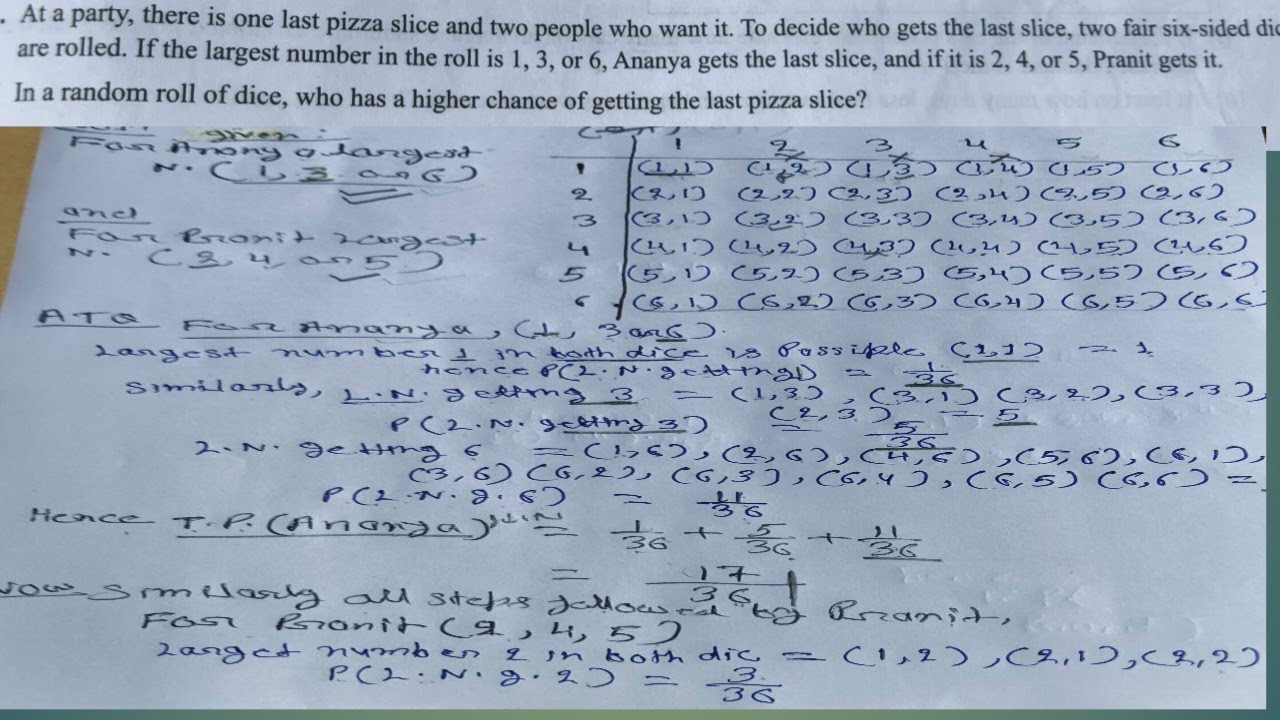 . At a party, there is one last pizza slice and two people who want it. To decide who gets the last slice, two fair six-sided dic
are rolled. If the largest number in the roll is 1, 3, or 6, Ananya gets the last slice, and if it is 2, 4, or 5, Pranit gets it.
In a random roll of dice, who has a higher chance of getting the last pizza slice?
given:
For Anony a largest
N. (1, 3 or 6)
and
For Pronit Largest
N. (2, 4 or 5)
1 2 3 4 5 6
1 (1,1) (1,2) (1,3) (1,4) (1,5) (1,6)
2 (2,1) (2,2) (2,3) (2,4) (2,5) (2,6)
3 (3,1) (3,2) (3,3) (3,4) (3,5) (3,6)
4 (4,1) (4,2) (4,3) (4,4) (4,5) (4,6)
5 (5,1) (5,2) (5,3) (5,4) (5,5) (5,6)
6 (6,1) (6,2) (6,3) (6,4) (6,5) (6,6
ATQ For Ananya, (1, 3 or 6).
Largest number 1 in both dice is Possible (1,1) = 1
hence P(L.N. getting 1) = 1/36
Similarly, L.N. getting 3 = (1,3), (3,1) (3,2), (3,3),
(2,3) = 5
P(L.N. getting 3) 5/36
L.N. getting 6 = (1,6), (2,6), (4,6), (5,6), (6,1),
(3,6) (6,2), (6,3), (6,4), (6,5) (6,6) =
P(L.N.g.6) = 11/36
Hence T.P. (Ananya) = 1/36 + 5/36 + 11/36
= 17/36
Now Similarly all steps followed by Pranit,
For Pronit (2, 4, 5)
Larget number 2 in both dic = (1,2), (2,1), (2,2)
P(L.N.g.2) = 3/36